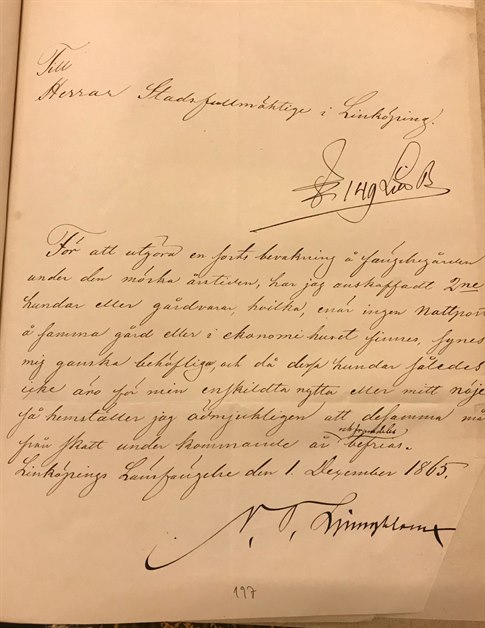 Till
Herrar Stadsfullmäktige i Linköping!
§ 149 Litt B
För att utgöra en sorts bevakning å fängelsegården
under den mörka årstiden, har jag anskaffadt 2ne
hundar eller gårdvarar, hvilka, enär ingen Nattpost
å samma gård eller i ekonomi huset finnes, synes
mig ganska behöfliga, och då dessa hundar således
icke äro för min enskildta nytta eller mitt nöje
så hemställer jag ödmjukligen att desamma må
från skatt under kommande år befrias.
Linköpings Länsfängelse den 1. December 1865.
N. T. Ljungblom
197